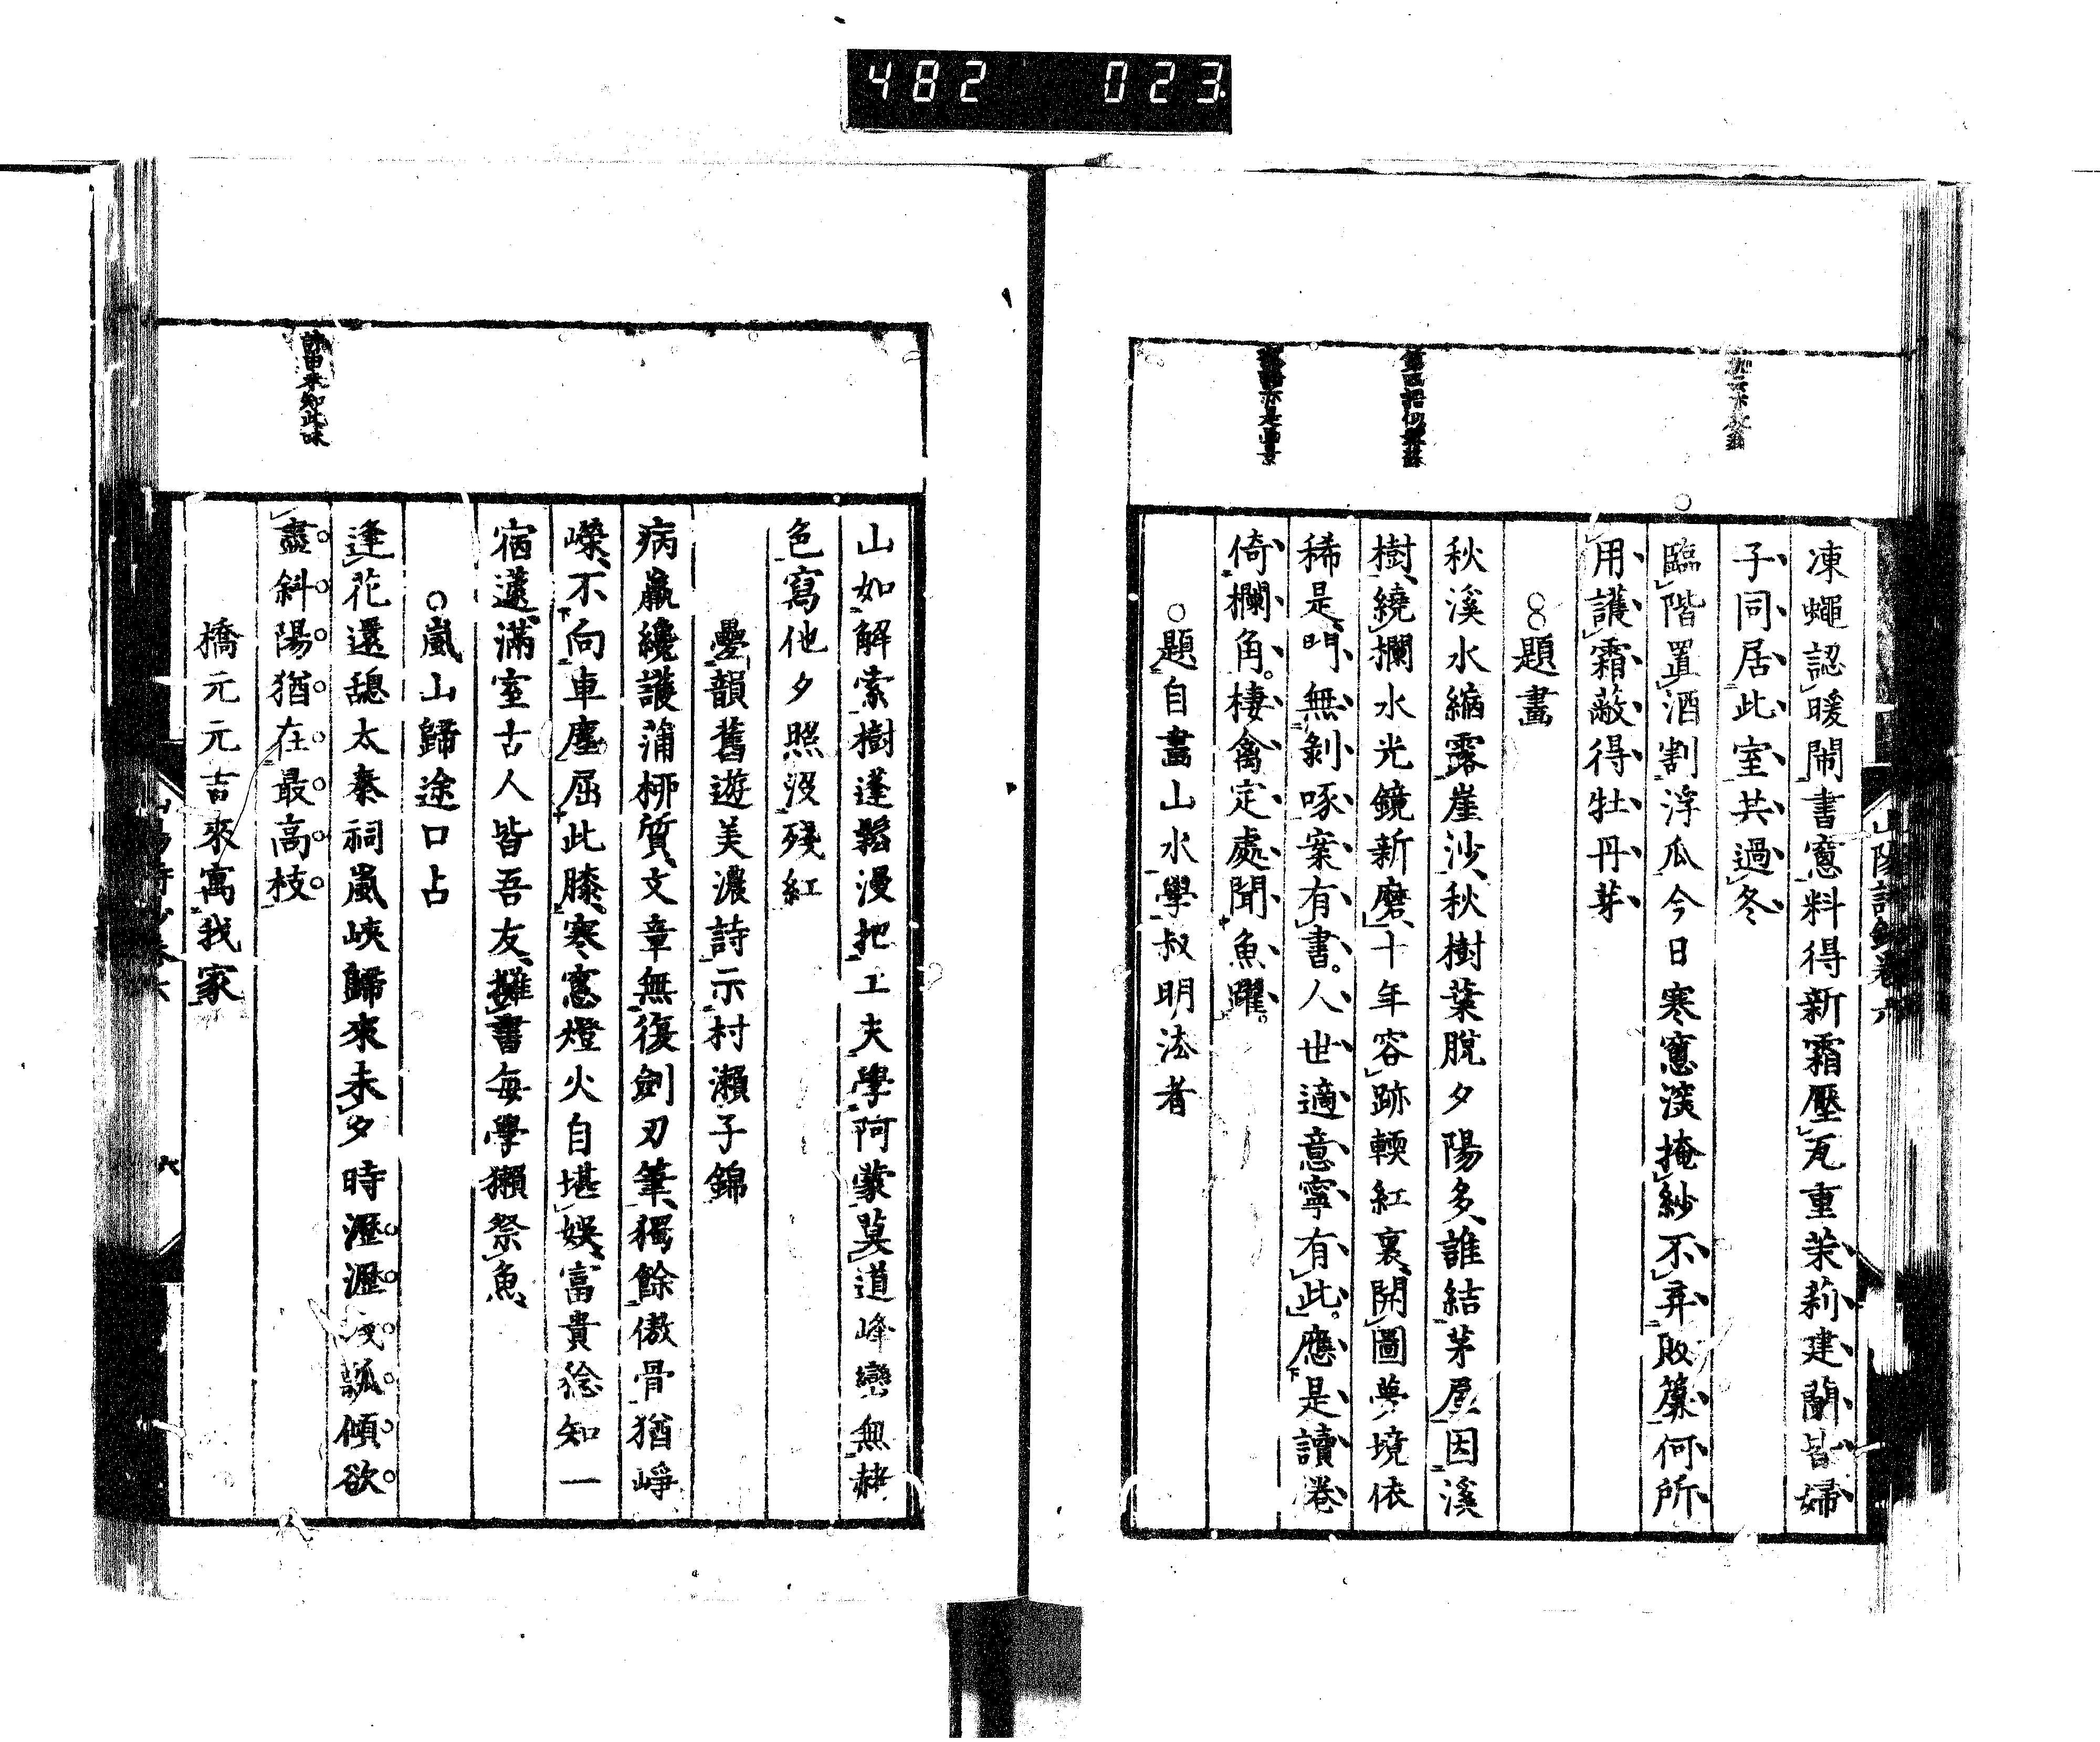 482 023
山陽詩鈔卷六
凍蠅認暖鬧書窻料得新霜壓瓦重茉莉建蘭皆婦
子同居此室共過冬
臨階置酒割浮瓜今日寒窻淡掩紗不弃敗簾何所
用護霜蔽得牡丹芽
題畫
第四語似
秋溪水縮露崖沙秋樹葉脫夕陽多誰結茅屋因溪
樹繞欄水光鏡新磨十年客跡輭紅裏開圖夢境依
稀是門無剝啄案有書人世適意寧有此應是讀倦
亦是畫景
倚欄角棲禽定處聞魚躍
題自畫山水學叔明法者
山如解索樹蓬鬆漫把工夫學阿蒙莫道峰巒無赭
色寫他夕照沒殘紅
疊韻舊遊美濃詩示村瀨子錦
病羸纔護蒲柳質文章無復劍刃筆獨餘傲骨猶崢
嶸不向車塵屈此膝寒窻燈火自堪娛富貴從知一
宿蘧滿室古人皆吾友擁書每學獺祭魚
嵐山歸途口占
逢花還憩太秦祠嵐峽歸來未夕時瀝瀝 瓢傾欲
師由來知此味
盡斜陽猶在最高枝
橋元元吉來寓我家
六